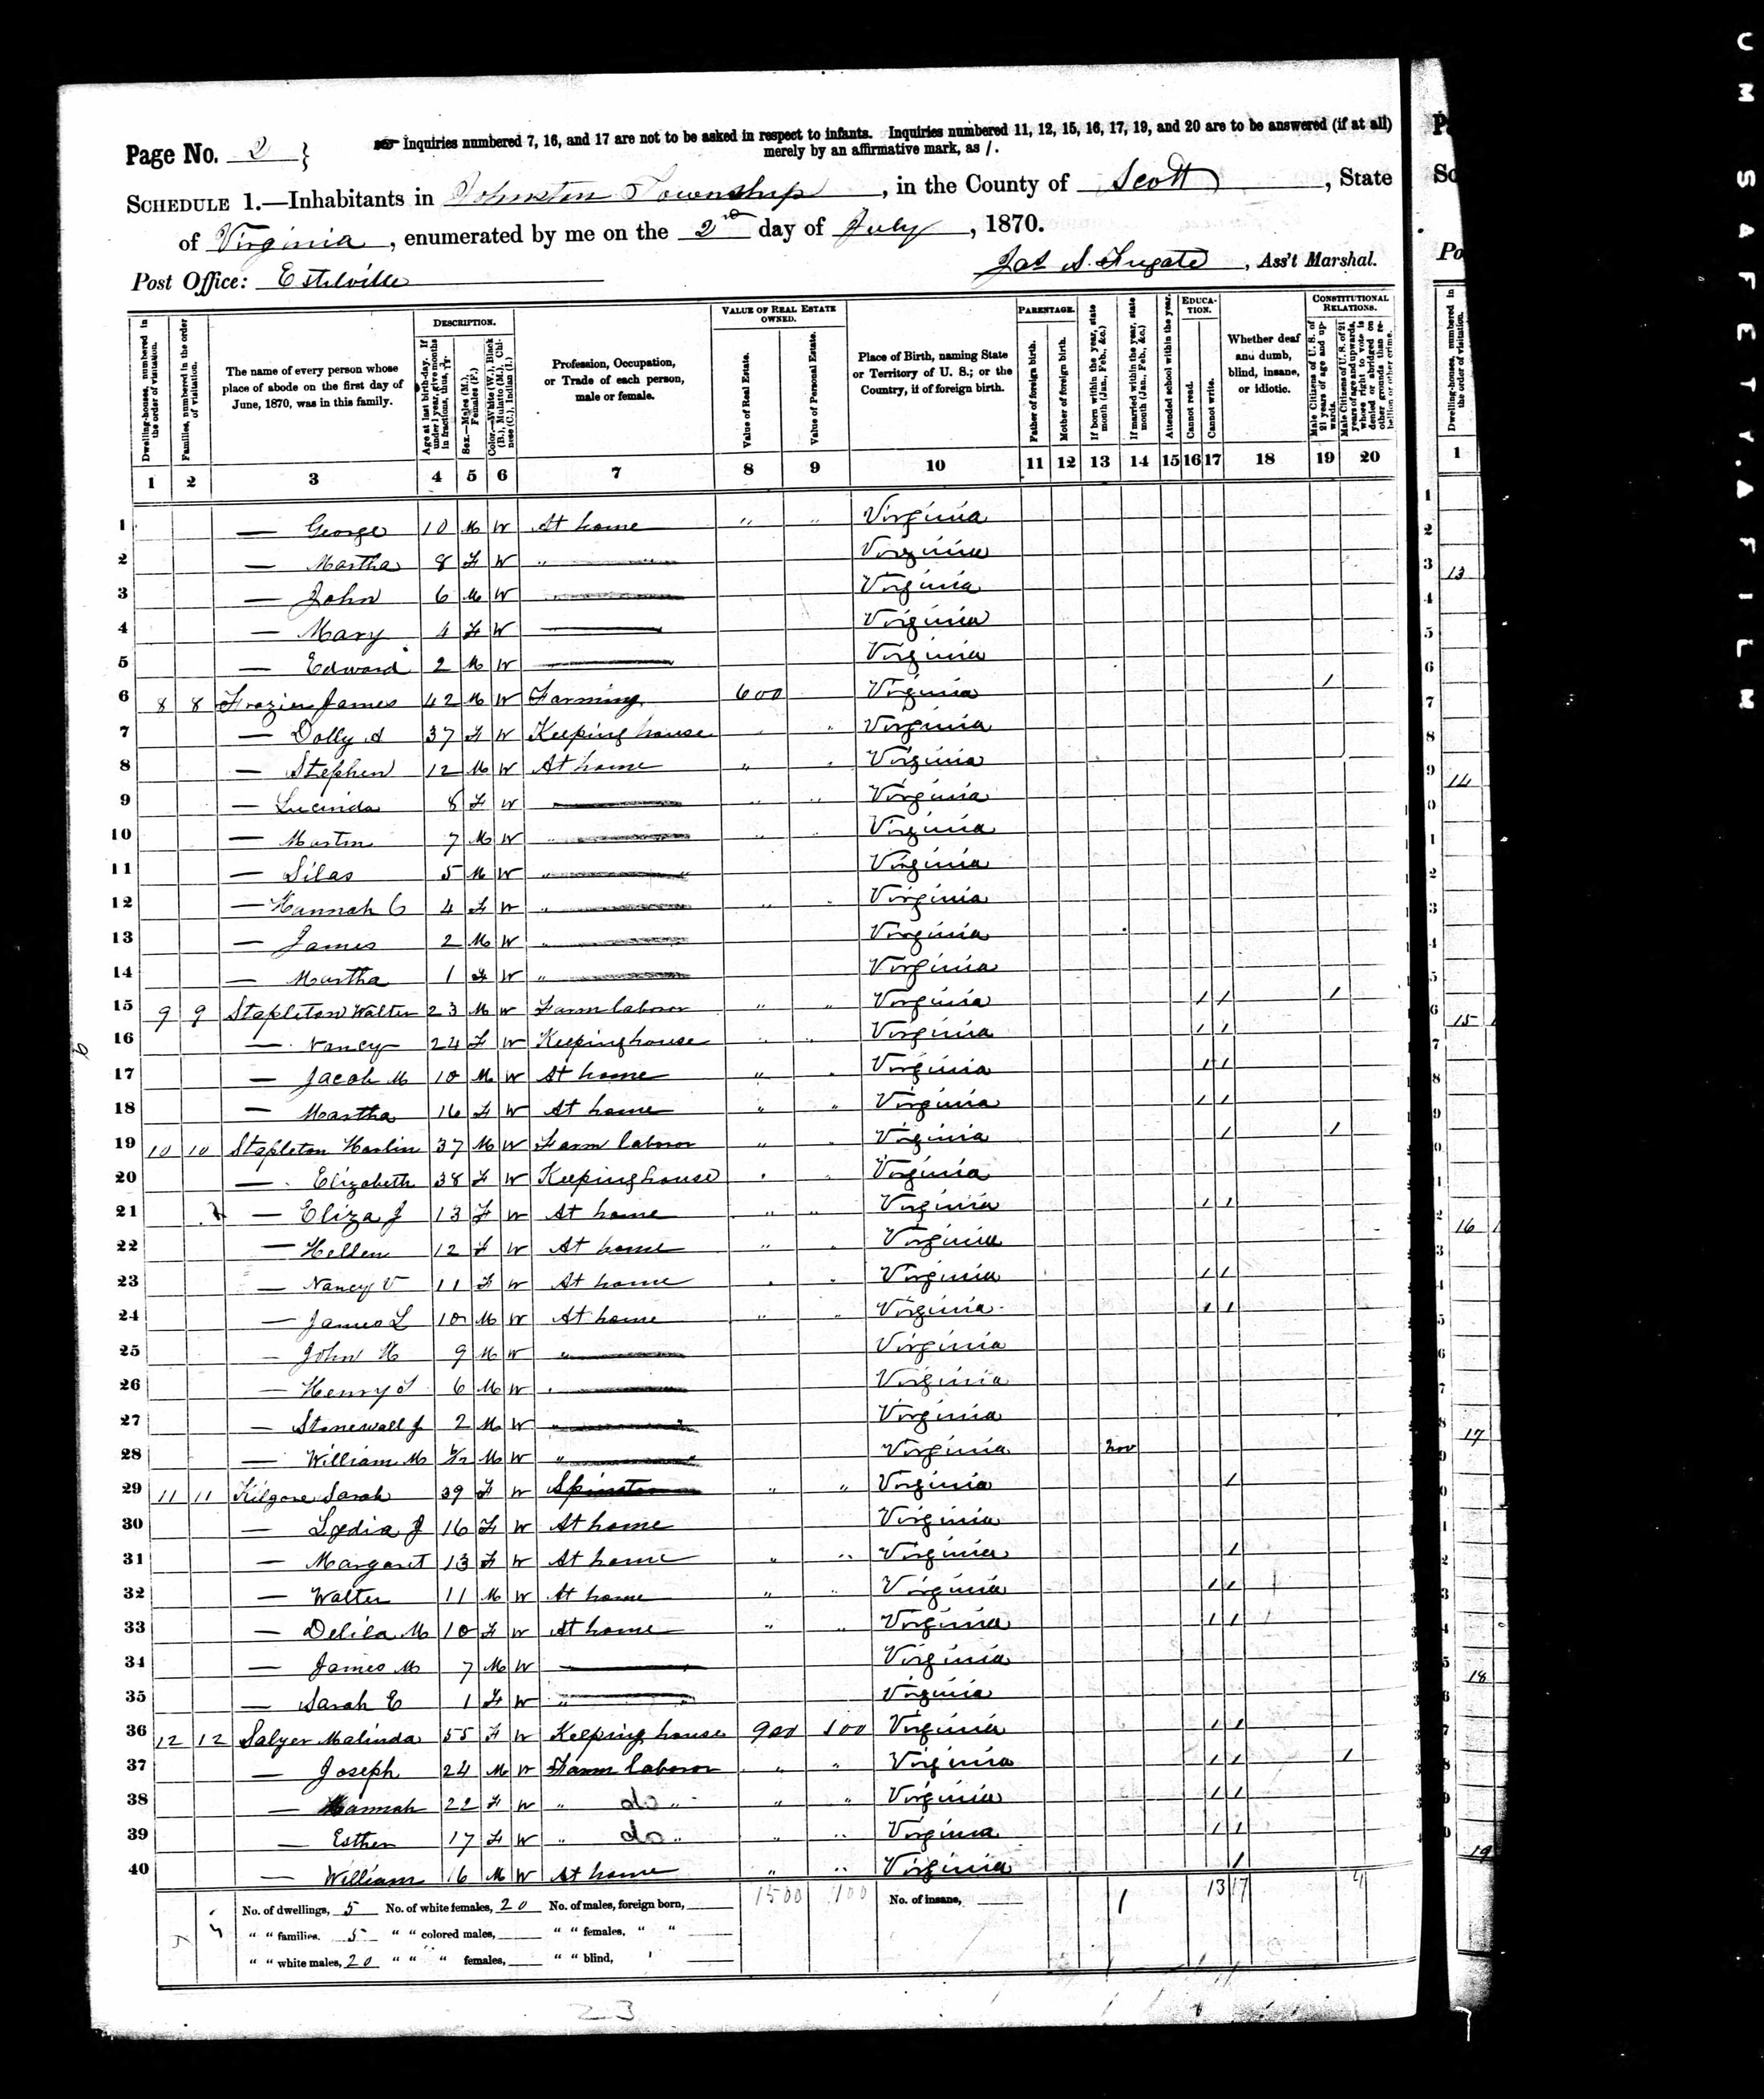 Page No. 2 }
Inquiries numbered 7, 16, and 17 are not to be asked in respect to infants. Inquiries numbered 11, 12, 15, 16, 17, 19, and 20 are to be answered (if at all)
merely by an affirmative mark, as /.
SCHEDULE 1.—Inhabitants in Johnston Township, in the County of Scott, State
of Virginia, enumerated by me on the 2nd day of July, 1870.
Post Office: Estelville
Jas S. Fugate, Ass't Marshal.
Dwelling-houses, numbered in the order of visitation.
Families, numbered in the order of visitation.
The name of every person whose place of abode on the first day of June, 1870, was in this family.
DESCRIPTION.
Age at last birth-day. If under 1 year, give months in fractions, thus,
Sex.—Males (M.), Females (F.)
Color.—White (W.), Black (B.), Mulatto (M.), Chinese (C.), Indian (I.)
Profession, Occupation, or Trade of each person, male or female.
VALUE OF REAL ESTATE OWNED.
Value of Real Estate.
Value of Personal Estate.
Place of Birth, naming State or Territory of U. S.; or the Country, if of foreign birth.
PARENTAGE.
Father of foreign birth.
Mother of foreign birth.
If born within the year, state month (Jan., Feb., &c.)
If married within the year, state month (Jan., Feb., &c.)
Attended school within the year.
EDUCATION.
Cannot read.
Cannot write.
Whether deaf and dumb, blind, insane, or idiotic.
CONSTITUTIONAL RELATIONS.
Male Citizens of U. S. of 21 years of age and upwards.
Male Citizens of U. S. of 21 years of age and upwards, whose right to vote is denied or abridged on other grounds than rebellion or other crime.
1 2 3 4 5 6 7 8 9 10 11 12 13 14 15 16 17 18 19 20
1 — George 10 M W At home " " Virginia
2 — Martha 8 F W " Virginia
3 — John 6 M W Virginia
4 — Mary 4 F W Virginia
5 — Edward 2 M W Virginia
6 8 8 Frazier James 42 M W Farming 600 Virginia /
7 — Dolly A 37 F W Keeping house " Virginia
8 — Stephen 12 M W At home " " Virginia
9 — Lucinda 8 F W " " Virginia
10 — Martin 7 M W " " " Virginia
11 — Silas 5 M W " Virginia
12 — Hannah C 4 F W " " " Virginia
13 — James 2 M W " Virginia
14 — Martha 1 F W " Virginia
15 9 9 Stapleton Walter 23 M W Farm laborer " " Virginia / / /
16 — Nancy 24 F W Keeping house " " Virginia / /
17 — Jacob M 10 M W At home " " Virginia / /
18 — Martha 16 F W At home " " Virginia / /
19 10 10 Stapleton Harlin 37 M W Farm laborer " " Virginia / /
20 — Elizabeth 38 F W Keeping house " " Virginia
21 — Eliza J 13 F W At home " " Virginia / /
22 — Hellen 12 F W At home " " Virginia
23 — Nancy V 11 F W At home " " Virginia / /
24 — James L 10 M W At home " " Virginia / /
25 — John H 9 M W " Virginia
26 — Henry S 6 M W " Virginia
27 — Stonewall J 2 M W " Virginia
28 — William M M W " Virginia Nov
29 11 11 Kilgore Sarah 39 F W Spinster " " Virginia /
30 — Lydia J 16 F W At home Virginia
31 — Margaret 13 F W At home " " Virginia /
32 — Walter 11 M W At home " " Virginia / /
33 — Delila M 10 F W At home " " Virginia / /
34 — James M 7 M W Virginia
35 — Sarah E 1 F W " Virginia
36 12 12 Salyer Malinda 55 F W Keeping house 900 100 Virginia / /
37 — Joseph 24 M W Farm laborer " " Virginia / / /
38 — Hannah 22 F W " do " " " Virginia / /
39 — Esther 17 F W " do " " " Virginia / /
40 — William 16 M W At home " " Virginia /
No. of dwellings, 5 No. of white females, 20 No. of males, foreign born, 1500 100 No. of insane, 1 13 17 4
" " families, 5 " " colored males, " " females, " "
" " white males, 20 " " " females, " " blind,
23
13
14
15
16
17
18
19
SAFETY.AFILM